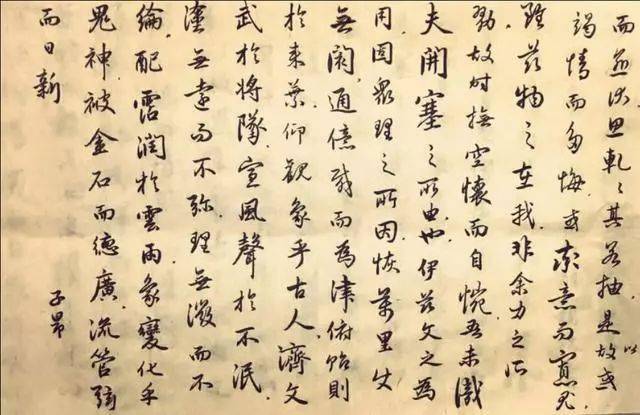 而愈伏思軋〻其若抽是故或
以
竭情而多悔或率意而寡尤
雖茲物之在我非余力之所
勠故時撫空懷而自惋吾未識
夫開塞之所由也伊茲文之為
用固眾理之所因恢萬里使
無閡通億載而為津俯貽則
於來葉仰觀象乎古人濟文
武於將墜宣風聲於不泯
塗無遠而不彌理無微而不
綸配霑潤於雲雨象變化乎
鬼神被金石而德廣流管絃
而日新
子昂